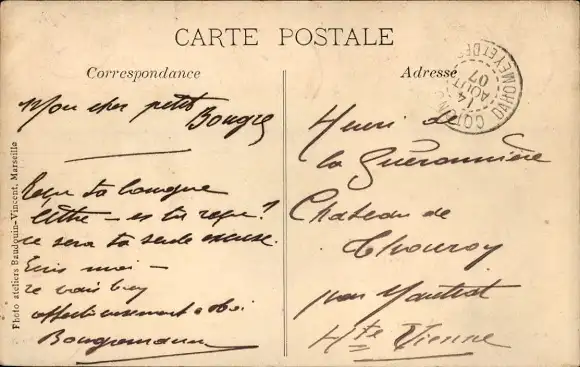 CARTE POSTALE
Correspondance
Adressé
COTONO
DAHOMEY ET DEP
14
AOUT
07
Mon cher petit
Bougre
Reçu ta longue
lettre – es tu reçu?
ce sera ta seule excuse.
Ecris moi –
Je vais bien
affectueusement a toi
Henri de
la Guéronnière
Chateau de
Thouroy
par Nantiat
Hte Vienne
Photo ateliers Baudouin-Vincent, Marseille